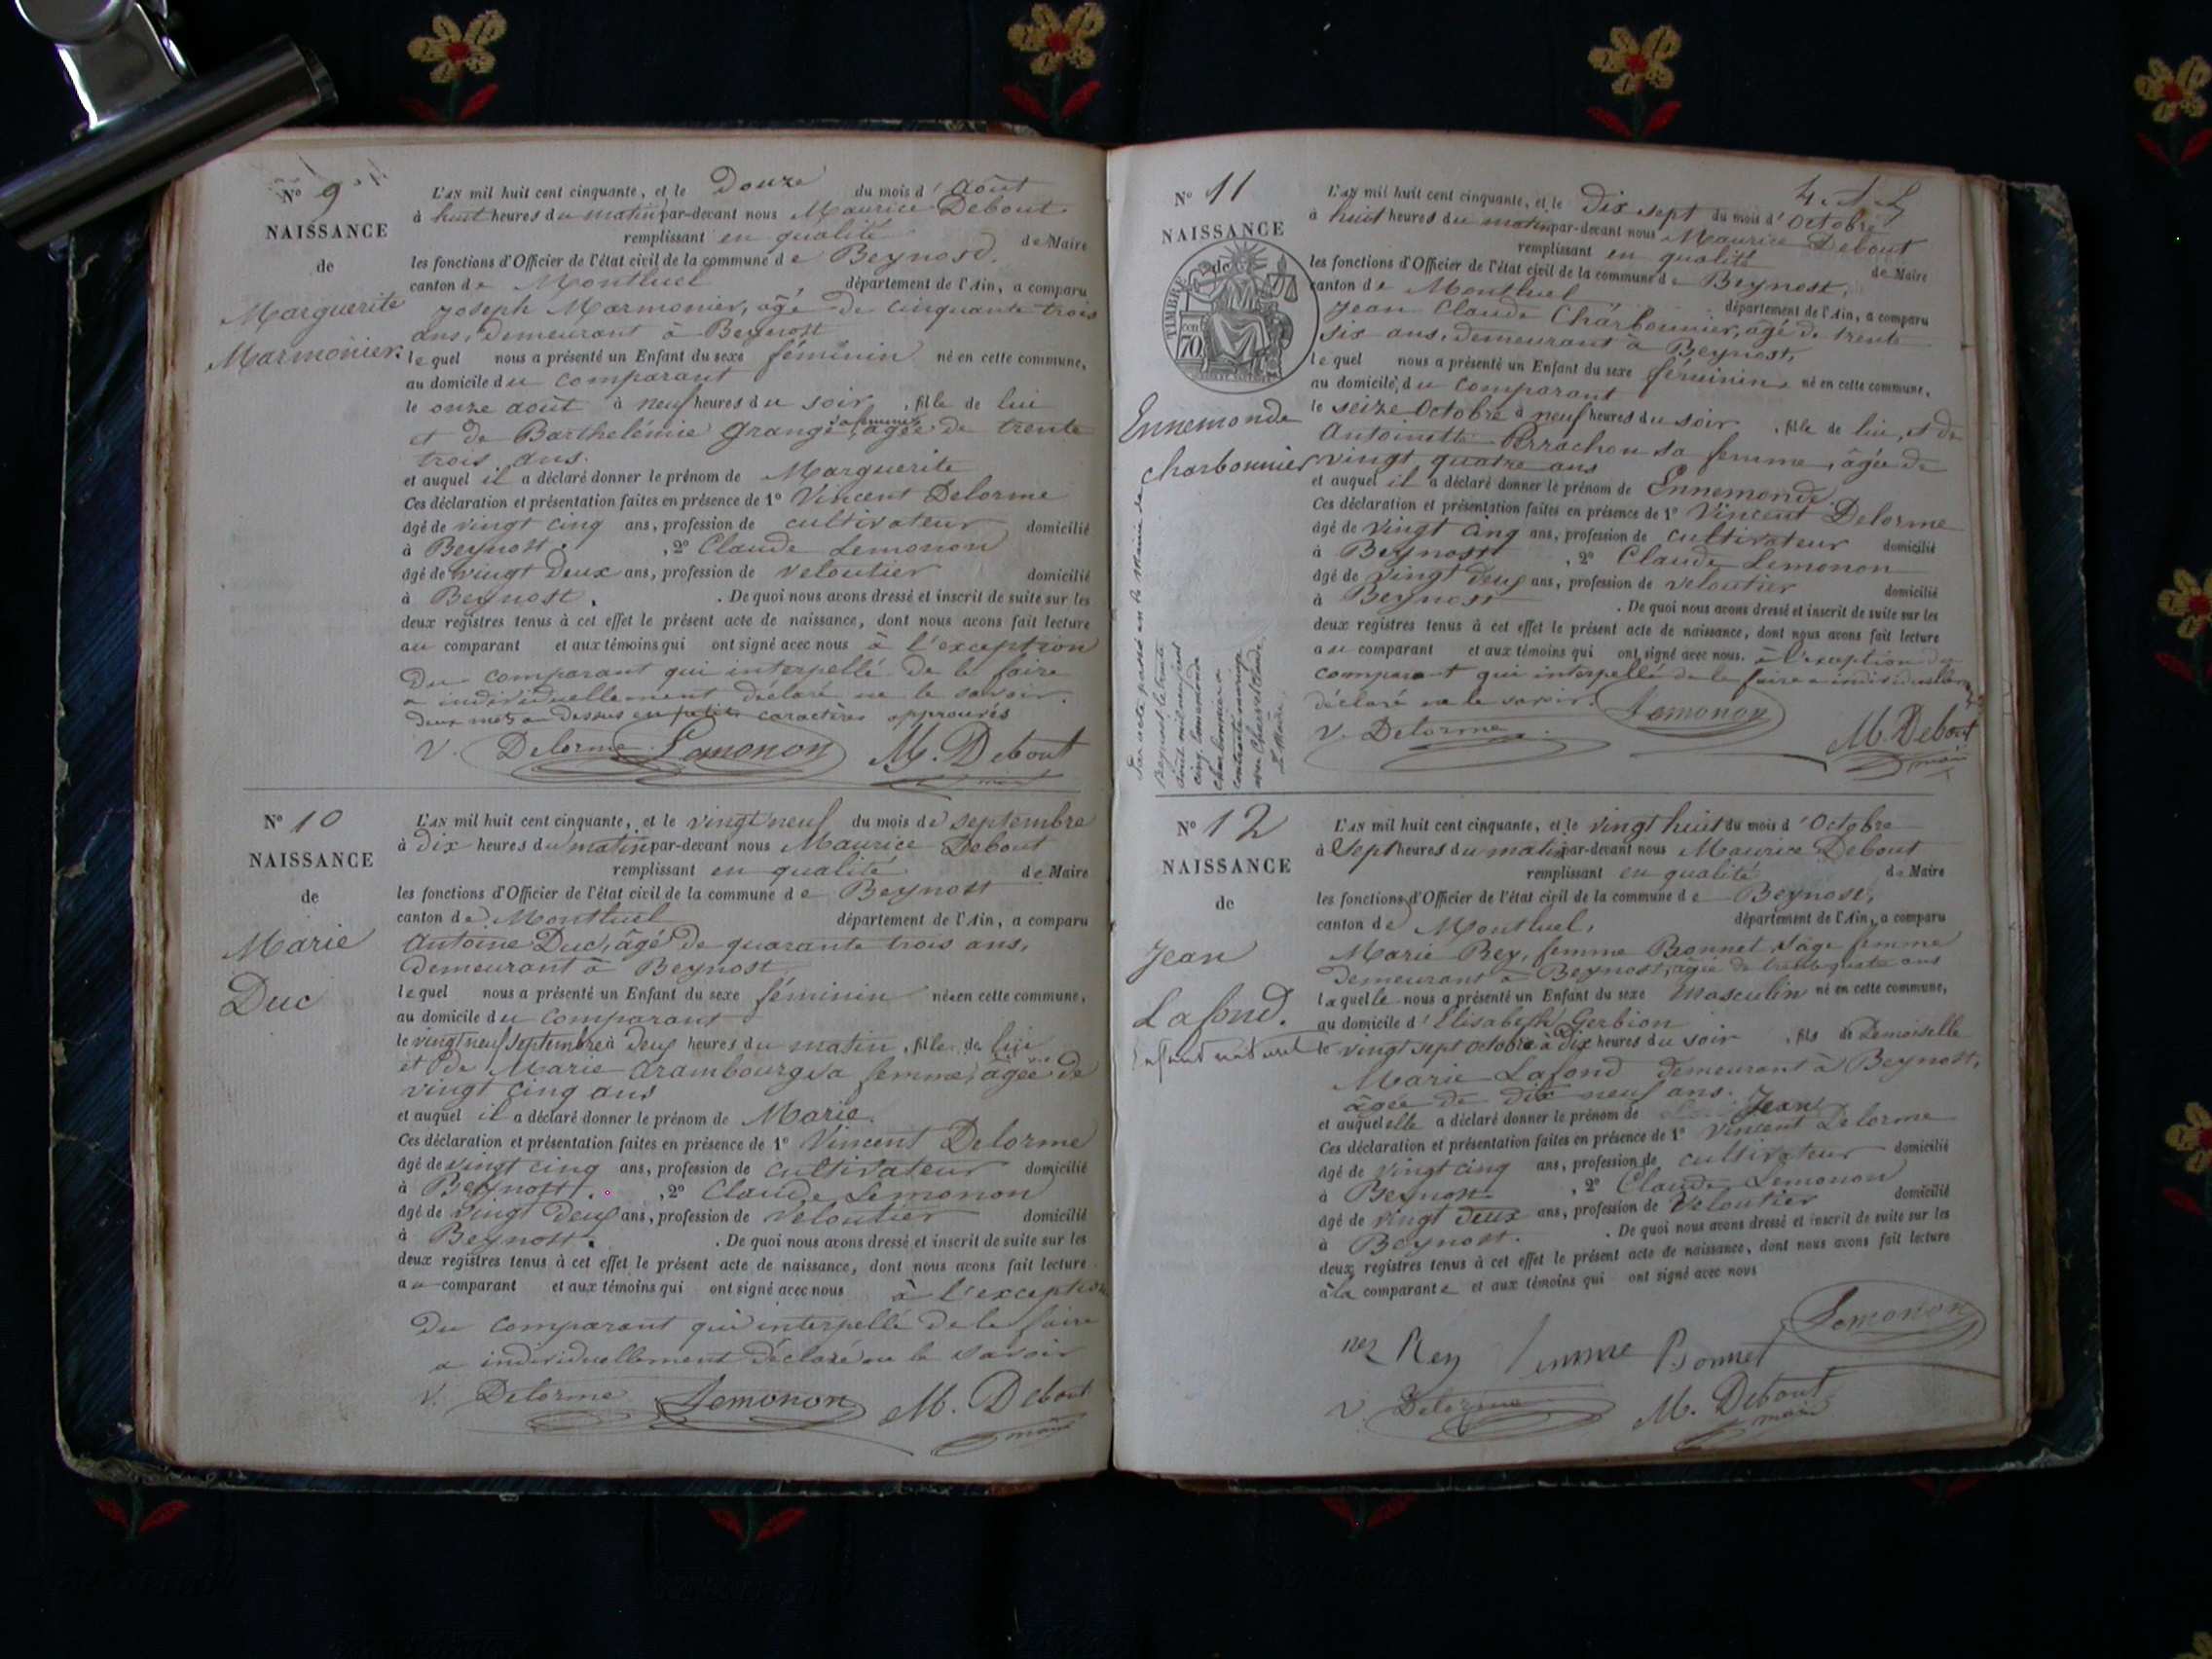 N° 9
NAISSANCE
de
Marguerite
Marmonier.
L'AN mil huit cent cinquante, et le Douze du mois d'Août
à huit heures du matin par-devant nous Maurice Debout
remplissant en qualité de Maire
les fonctions d'Officier de l'état civil de la commune de Beynost.
canton de Montluel département de l'Ain, a comparu
Joseph Marmonier, âgé de cinquante trois
ans, demeurant à Beynost
lequel nous a présenté un Enfant du sexe féminin né en cette commune,
au domicile du comparant
le onze août à neuf heures du soir, fille de lui
et de Barthelémie Grange, sa femme, agée de trente
trois ans.
et auquel il a déclaré donner le prénom de Marguerite
Ces déclaration et présentation faites en présence de 1° Vincent Delorme
âgé de vingt cinq ans, profession de cultivateur domicilié
à Beynost. , 2° Claude Lemonon
âgé de vingt Deux ans, profession de veloutier domicilié
à Beynost. . De quoi nous avons dressé et inscrit de suite sur les
deux registres tenus à cet effet le présent acte de naissance, dont nous avons fait lecture
au comparant et aux témoins qui ont signé avec nous à l'exception
Du comparant qui interpellé de le faire
a individuellement déclaré ne le savoir.
deux mots au dessus en petits caractères approuvés
V. Delorme Lemonon M. Debout
maire
N° 10
NAISSANCE
de
Marie
Duc
L'AN mil huit cent cinquante, et le vingt neuf du mois de septembre
à Dix heures du matin par-devant nous Maurice Debout
remplissant en qualité de Maire
les fonctions d'Officier de l'état civil de la commune de Beynost
canton de Montluel département de l'Ain, a comparu
Antoine Duc, âgé de quarante trois ans,
demeurant à Beynost
lequel nous a présenté un Enfant du sexe féminin né en cette commune,
au domicile du comparant
le vingt neuf septembre à deux heures du matin, fille de lui
et de Marie Arambourg sa femme, âgée de
vingt cinq ans
et auquel il a déclaré donner le prénom de Marie.
Ces déclaration et présentation faites en présence de 1° Vincent Delorme
âgé de vingt cinq ans, profession de cultivateur domicilié
à Beynost. , 2° Claude Lemonon
âgé de vingt Deux ans, profession de veloutier domicilié
à Beynost. . De quoi nous avons dressé et inscrit de suite sur les
deux registres tenus à cet effet le présent acte de naissance, dont nous avons fait lecture
au comparant et aux témoins qui ont signé avec nous à l'exception
Du comparant qui interpellé de le faire
a individuellement déclaré ne le savoir
V. Delorme Lemonon M. Debout
maire
N° 11
NAISSANCE
de
TIMBRE
70
Ennemonde
Charbonnier
Par acte passé en la Mairie de
Beynost le trente
août mil huit cent
cinq Ennemonde
Charbonnier a
contracté mariage
avec Claude
Le Maire
L'AN mil huit cent cinquante, et le Dix sept du mois d'Octobre
à huit heures du matin par-devant nous Maurice Debout
remplissant en qualité de Maire
les fonctions d'Officier de l'état civil de la commune de Beynost,
canton de Montluel département de l'Ain, a comparu
Jean Claude Charbonnier, âgé de trente
six ans, demeurant à Beynost,
lequel nous a présenté un Enfant du sexe féminin né en cette commune,
au domicile du comparant
le seize Octobre à neuf heures du soir, fille de lui, et de
Antoinette Perrachon sa femme, âgée de
vingt quatre ans
et auquel il a déclaré donner le prénom de Ennemonde
Ces déclaration et présentation faites en présence de 1° Vincent Delorme
âgé de vingt cinq ans, profession de cultivateur domicilié
à Beynost , 2° Claude Lemonon
âgé de vingt deux ans, profession de veloutier domicilié
à Beynost . De quoi nous avons dressé et inscrit de suite sur les
deux registres tenus à cet effet le présent acte de naissance, dont nous avons fait lecture
au comparant et aux témoins qui ont signé avec nous. à l'exception du
comparant qui interpellé de le faire a individuellement
déclaré ne le savoir. Lemonon
V. Delorme M. Debout
maire
N° 12
NAISSANCE
de
Jean
Lafond.
Enfant naturel
L'AN mil huit cent cinquante, et le vingt huit du mois d'Octobre
à Sept heures du matin par-devant nous Maurice Debout
remplissant en qualité de Maire
les fonctions d'Officier de l'état civil de la commune de Beynost,
canton de Montluel, département de l'Ain, a comparu
Marie Rey, femme Bonnet, sage femme
demeurant à Beynost, agée de trente quatre ans
laquelle nous a présenté un Enfant du sexe Masculin né en cette commune,
au domicile d'Elisabeth Gerbion
le vingt sept octobre à Dix heures du soir, fils de Demoiselle
Marie Lafond demeurant à Beynost,
âgée de dix neuf ans.
et auquel elle a déclaré donner le prénom de Jean
Ces déclaration et présentation faites en présence de 1° Vincent Delorme
âgé de vingt cinq ans, profession de cultivateur domicilié
à Beynost , 2° Claude Lemonon
âgé de vingt deux ans, profession de veloutier domicilié
à Beynost. . De quoi nous avons dressé et inscrit de suite sur les
deux registres tenus à cet effet le présent acte de naissance, dont nous avons fait lecture
à la comparante et aux témoins qui ont signé avec nous
Rey femme Bonnet Lemonon
V. Delorme M. Debout
maire